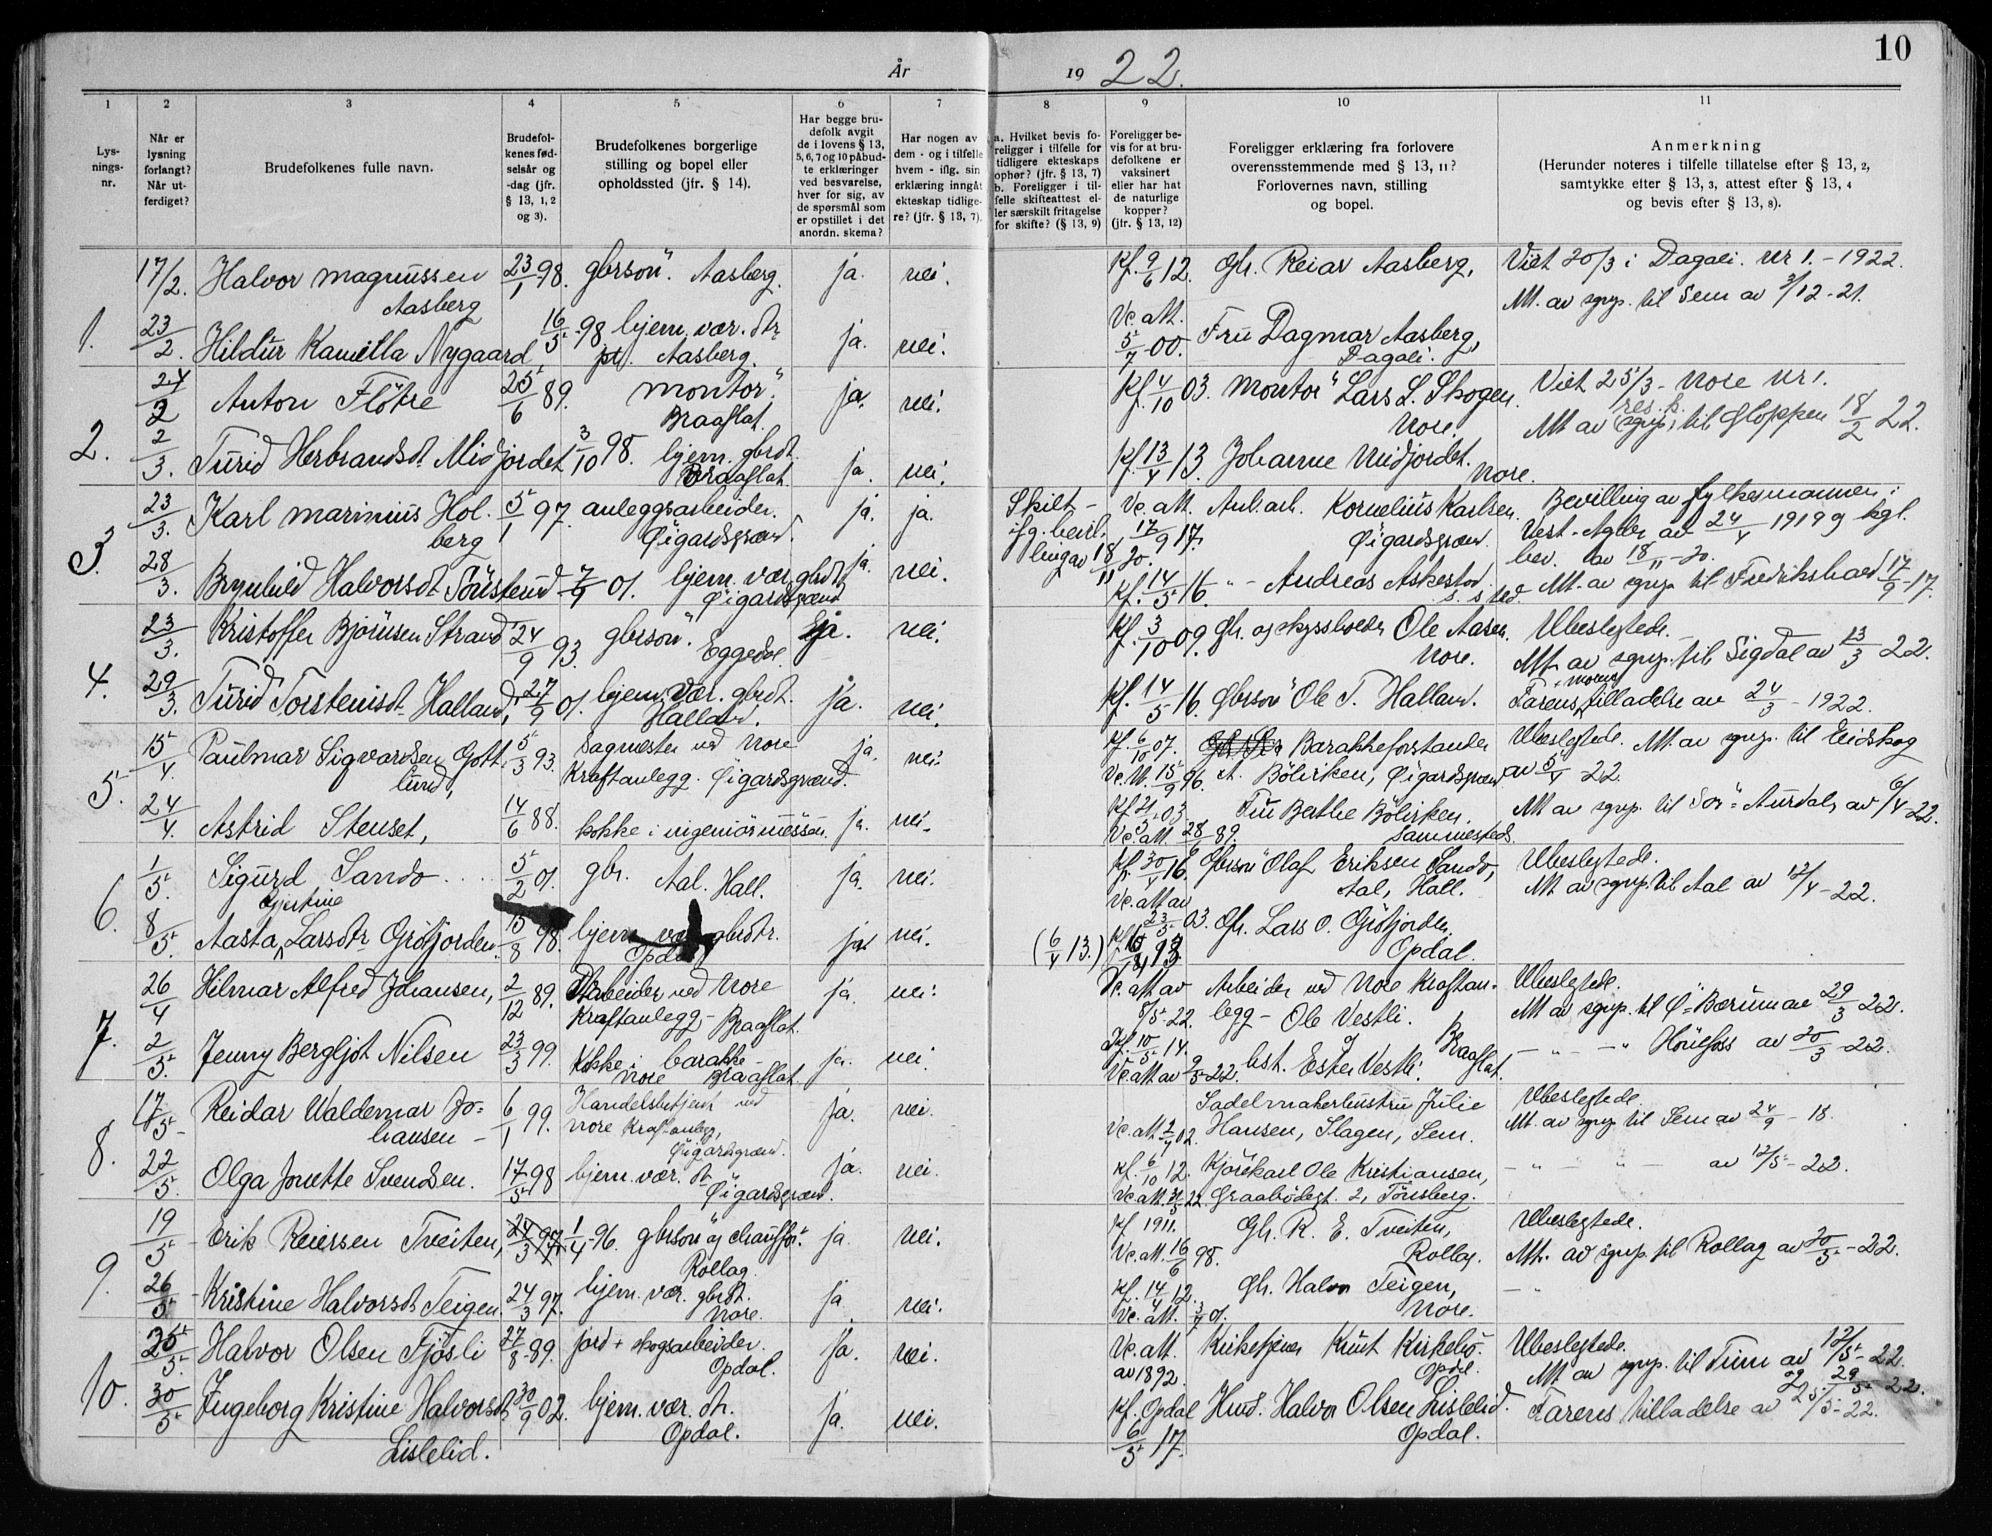 10
År 19 22.
1 2 3 4 5 6 7 8 9 10 11
Lysnings-nr.
Når er lysning forlangt? Når utferdiget?
Brudefolkenes fulle navn.
Brudefolkenes fødselsår og -dag (jfr. § 13, 1, 2 og 3).
Brudefolkenes borgerlige stilling og bopel eller opholdssted (jfr. § 14).
Har begge brudefolk avgit de i lovens § 13, 5, 6, 7 og 10 påbudte erklæringer ved besvarelse, hver for sig, av de spørsmål som er opstillet i det anordn. skema?
Har nogen av dem - og i tilfelle hvem - iflg. sin erklæring inngått ekteskap tidligere? (jfr. § 13, 7).
a. Hvilket bevis foreligger i tilfelle for tidligere ekteskaps ophør? (jfr. § 13, 7) b. Foreligger i tilfelle skifteattest eller særskilt fritagelse for skifte? (§ 13, 9)
Foreligger bevis for at brudefolkene er vaksinert eller har hat de naturlige kopper? (jfr. § 13, 12)
Foreligger erklæring fra forlovere overensstemmende med § 13, 11? Forlovernes navn, stilling og bopel.
Anmerkning (Herunder noteres i tilfelle tillatelse efter § 13, 2, samtykke efter § 13, 3, attest efter § 13, 4 og bevis efter § 13, 8).
1. 17/2. Halvor Magnussen Aasberg 23/1 98. gbrsön. Aasberg. ja. nei. Kf. 9/6 12. Gbr. Reiar Aasberg, Viet 20/3 i Dagali. Nr 1. - 1922.
Att. av sgnp. til Sem av 3/12 - 21.
23/2. Hildur Kamilla Nygaard 16/5 98 hjem. vær. dtr pt. Aasberg. ja. nei. Vc. att. 5/7 00. Fru Dagmar Aasberg, Dagali.
2. 24/2 Anton Flötre 25/6 89. montör. Braaflat. ja. nei. Kf. 4/10 03. Montör Lars L. Skogen. Nore. Viet 25/3 - Nore Nr 1.
Att av res. k. sgnp. til Gloppen 18/2 22.
2/3. Turid Herbrandsdt. Midjordet 3/10 98. hjem. gbrdt. Braaflat. ja. nei. Kf. 13/4 13. Johanne Midjordet. Nore.
3. 23/3. Karl Marinius Holberg 5/1 97. anleggsarbeider. Öigardsgrænd. ja. ja. Skilt - ifg. bevillling av 18/11 20. Vc. att. 17/9 17. Anl. arb. Kornelius Karlsen. Öigardsgrænd. Bevilling av fylkesmannen i
Vest-Agder av 24/4 1919 og kgl.
bev. av 18/11 - 20.
28/3. Brynhild Halvorsdt Söristeud 7/9 01. hjem. vær gbrdt. Öigardsgrænd ja. nei. Kf. 14/5 16. " - Andreas Askestad s. sted. Att. av sgnp. til Fredrikshald 17/9 - 17.
4. 23/3. Kristoffer Björnsen Strand 24/9 93. gbrsön. Eggedal. ja. nei. Kf. 3/10 09. Gbr. og skysskaffer Ole Aasen. Nore. Ubeslegtede.
Att. av sgnp. til Sigdal av 13/3 22.
29/3. Turid Torsteinsdt. Halland, 27/9 01. hjem. vær. gbrdt. Halland. ja. nei. Kf. 14/5 16. Gbrsön Ole T. Halland. Farens + mors tilladelse av 24/3 - 1922.
5. 15/4. Paulmar Sigvardsen Gottlund, 5/3 93. Sagmester ved Nore Kraftanlegg. Öigardsgrænd. ja. nei. Kf. 6/10 07. Vc. att. 15/9 96. Barakkeforstander A. Bölviken, Öigardsgrænd Ubeslegtede. Att. av sgnp. til Eidskog
av 5/4 22.
24/4. Astrid Stenset, 14/6 88. kokke i ingeniörmessen. ja. nei. Kf. 21/5 03. Vc. att. 28/6 89. Fru Bertha Bölviken. Sammesteds. Att av sgnp. til Sör-Aurdal, av 6/4 - 22.
6. 1/5. Sigurd Sando 5/2 01. gbr. Aal. Hall. ja. nei. Kf. 30/4 16. Vc. att av 23/5 03. Gbrsön Olaf Eriksen Sando, Aal, Hall. Ubeslegtede.
Att av sgnp. til Aal av 12/4 - 22.
8/5. Aasta Gjertine Larsdtr Gröfjorden. 15/8 98. hjem. vær gbrdtr. Opdal. ja. nei. (6/4 13.) Gbr. Lars O. Gröfjorden. Opdal.
7. 26/4 Hilmar Alfred Johansen, 2/12 89. Arbeider ved Nore Kraftanlegg - Braaflat. ja. nei. Vc. att av 8/5 22. Arbeider ved Nore Kraftanlegg - Ole Vestli. Ubeslegtede.
Att av sgnp. til Ö-Bærum av 29/3 22.
2/5. Jenny Bergljot Nilsen 23/3 99. Kokke i barakke - Nore Braaflat. ja. nei. Kf. 10/5 14. Vc. att av 9/5 22. hst. Ester Vestli. Braaflat. - " - " - Hönefoss av 20/3 - 22.
8. 17/5 - Reidar Waldemar Johansen - 6/1 99. Handelsbetjent ved Nore Kraftanlegg, Öigardsgrænd. ja. nei. Vc. att. 9/7 02. Sadelmakerhustru Julie Hansen, Slagen, Sem. Ubeslegtede.
Att. av sgnp til Sem av 24/9 - 18.
22/5. Olga Jonette Svendsen. 17/5 98 hjem. vær. dt. Öigardsgrænd. ja. nei. Kf. 6/10 12. Vc. att. Kjörekarl Ole Kristiansen, Graabrödregt. 2, Tönsberg. - " - " - av 12/5 - 22.
9. 19/5 - Erik Reiersen Tveiten, 24/3 97. 1/4 - 96. gbrsön og chauffør. Rollag. ja. nei. Kf. 1911. Vc. att. 16/6 98. Gbr. R. E. Tveiten, Rollag. Ubeslegtede.
Att. av sgnp. til Rollag av 20/5 - 22.
26/5 - Kristine Halvorsdt Teigen. 24/3 97. hjem. vær. gbrdt. Nore. ja nei. Kf. 14/4 12. Vc. att. 3/7 01. Gbr. Halvor Teigen, Nore. - "
10. 25/5 Halvor Olsen Fjösli 27/8 - 89. jord + skogsarbeider. Opdal. ja. nei. Vc. att. av 1892. Kirketjener Knut Kirkebö. Opdal. Ubeslegtede.
Att av sgnp. til Tinn av 12/5 - 22.
29/5 22.
30/5 Ingeborg Kristine Halvorsdt Lislelid. 30/9 02. hjem. vær. dt. Opdal. ja. nei. Kf. Opdal 6/5 17. Husd. Halvor Olsen Lislelid. Opdal. Farens tilladelse av 25/5 - 22.